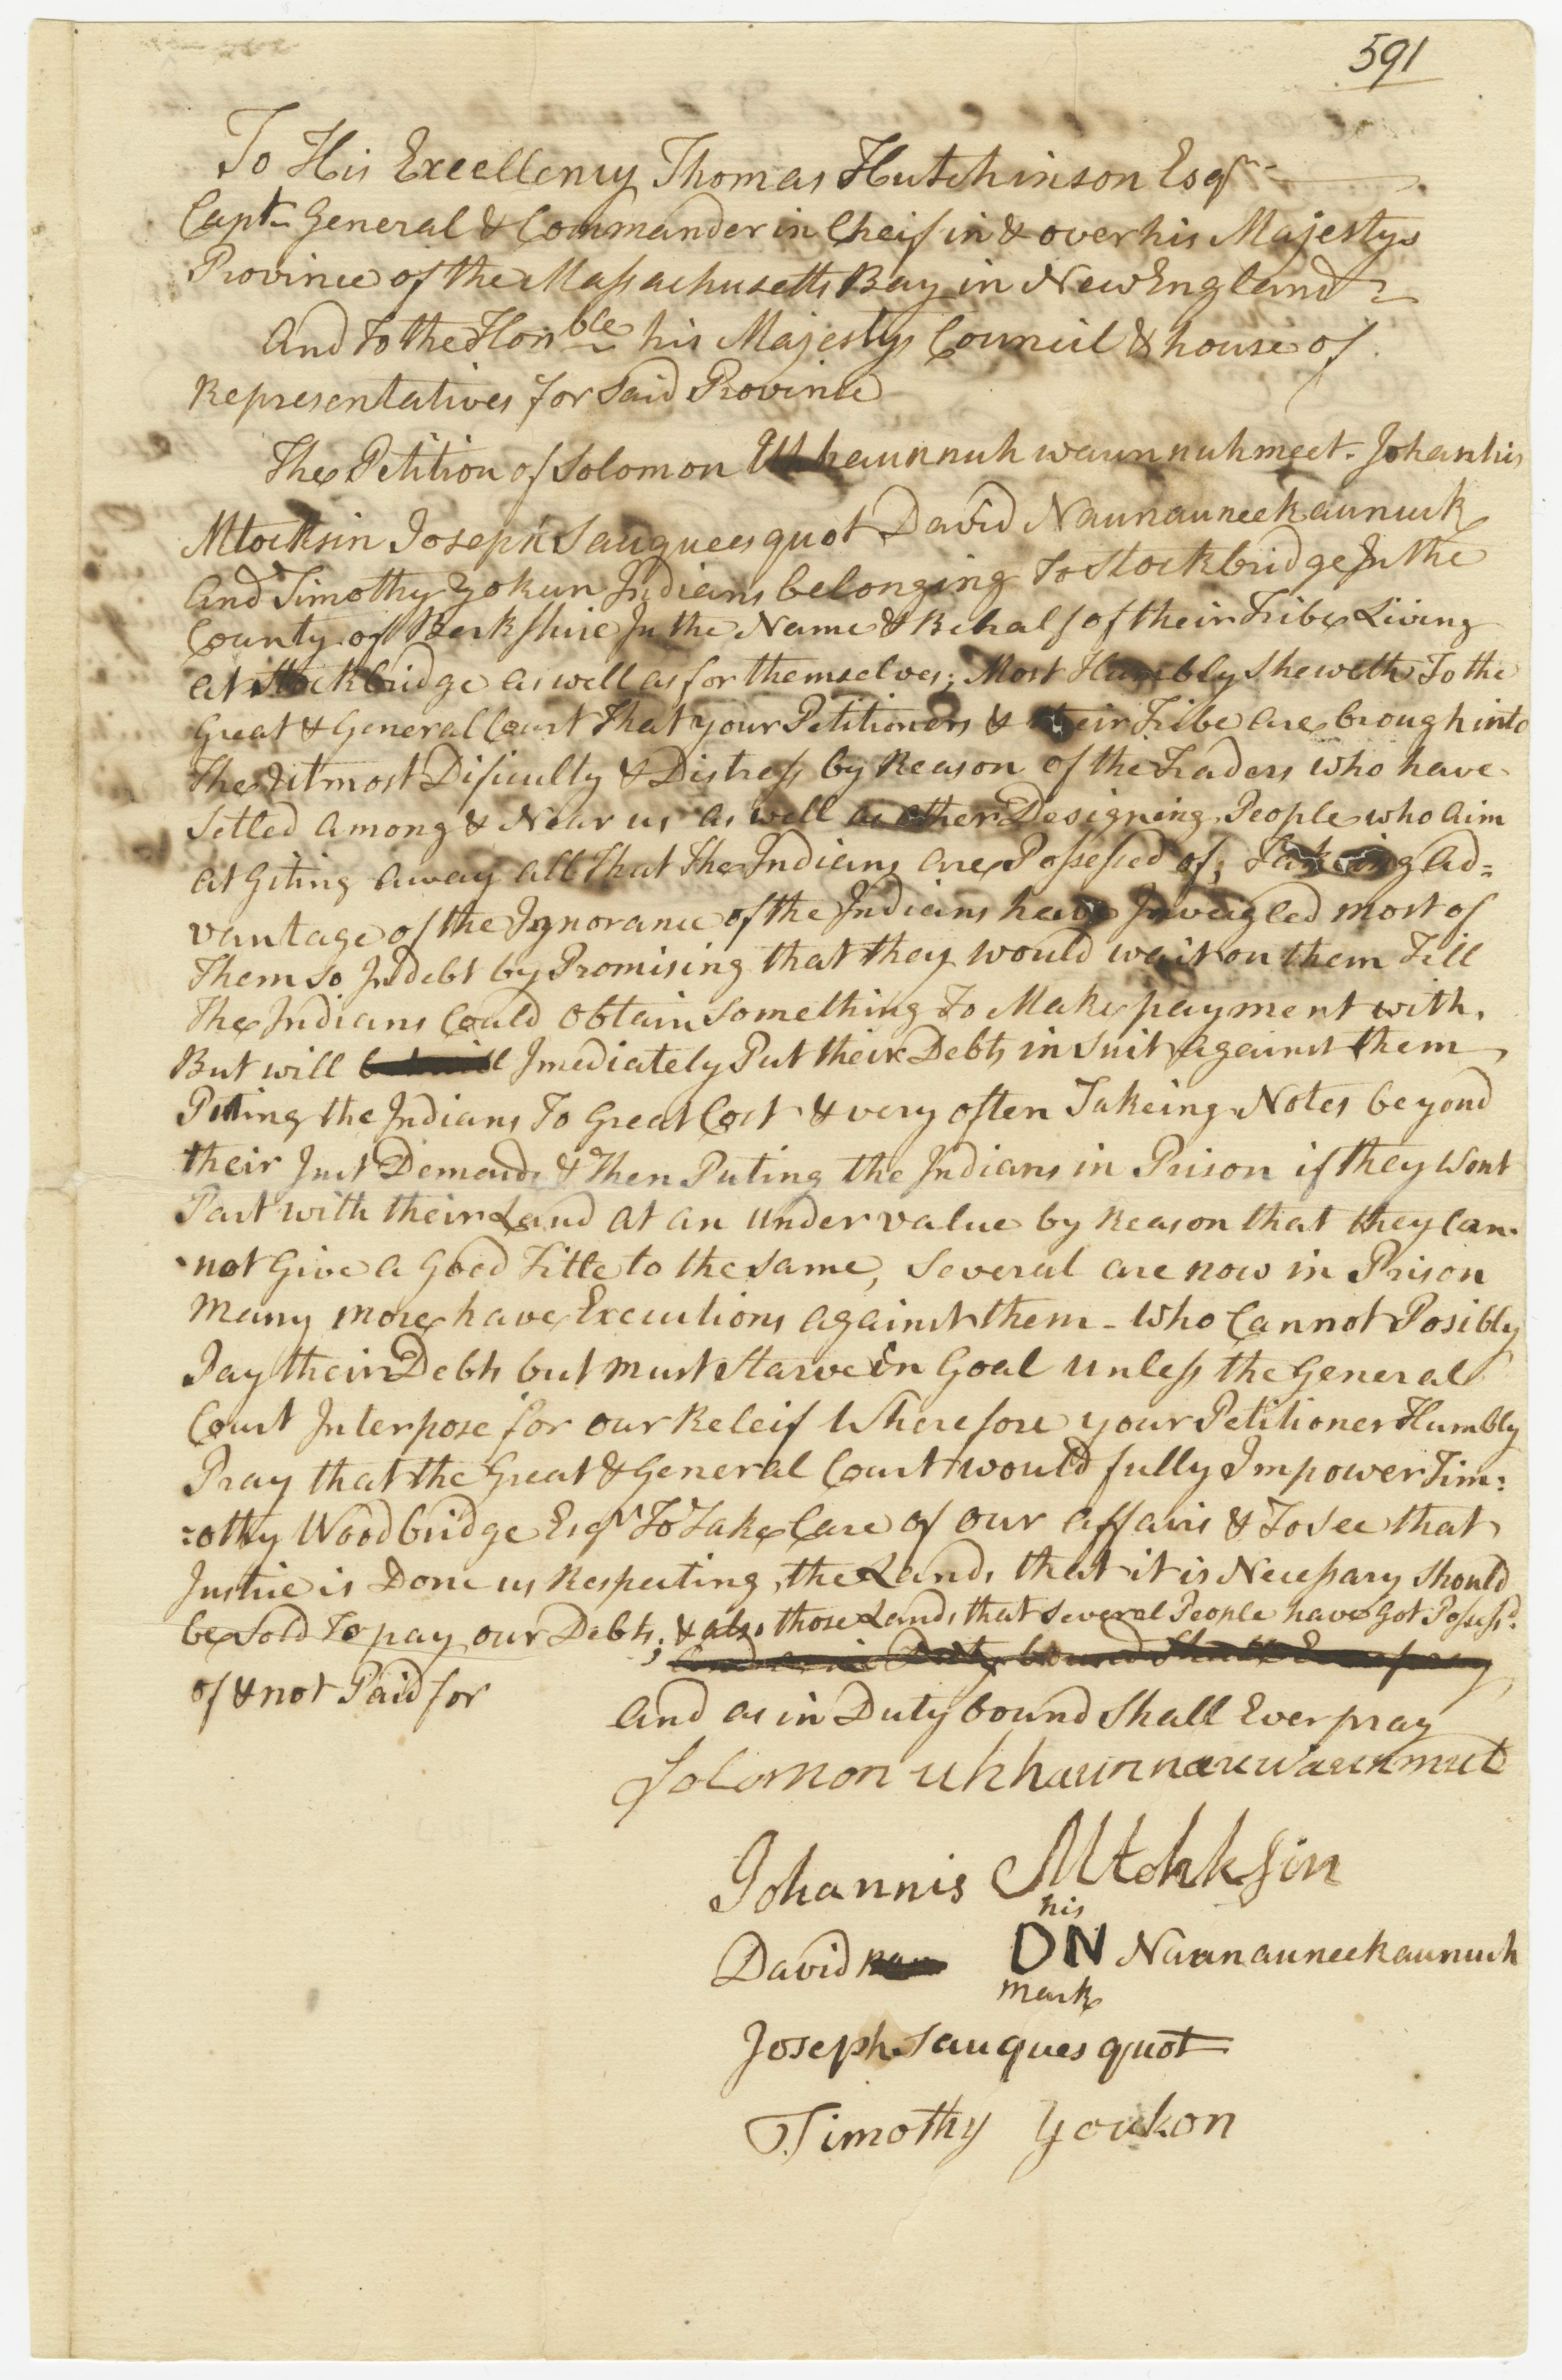 591
To His Excellency Thomas Hutchinson Esqr
Capt. General & Commander in Cheif in & over his Majestys
Province of the Massachusetts Bay in New England
And to the Honble his Majestys Council & house of
Representatives for Said Province
The Petition of Solomon Uhhaunnuhwaunnuhmeet. Johanhis
Mtocksin Joseph Sauqueesquot David Naunauneekaunuck
And Timothy Yokun Indians belonging to Stockbridge In the
County of Berkshire In the Name & Behalf of their Tribe Living
at Stockbridge as well as for themselves; Most Humbly Sheweth To the
Great & General Court That your Petitioners & their Tribe are brough into
The Utmost Dificulty & Distress by Reason of the Traders who have
Setled among & Near us as well as other Designing People who aim
at Giting away all that the Indians are Possessed of; Takeing Ad=
vantage of the Ignorance of the Indians have Inveigled most of
Them so Indebt by Promising that they would wait on them Till
The Indians Could Obtain Something to Make payment with,
But will Imediately Put their Debts in Suit against them
Puting the Indians To Great Cost & very often Takeing Notes beyond
their Just Demands & Then Puting the Indians in Prison if they Wont
Part with their Land at an under value by Reason that they Can-
not Give a Good Title to the Same, Several are now in Prison
Many more have Executions against them - Who Cannot Posibly
Pay their Debts but must Starve in Goal unless the General
Court Interpose for our Releif Wherefore your Petitioner Humbly
Pray that the Great & General Court would fully Impower Tim=
=othy Woodbridge Esqr To Take Care of our affairs & To See that
Justice is Done us Respecting the Lands that it is Necessary Should
be Sold To pay our Debts; & also those Lands that Several People have Got Possessd
And as in Duty bound Shall Ever pray
of & not Paid for
And as in Duty bound Shall Ever pray
Solomon uhhaunnauwaunmut
Johannis Mtohksin
his
David DN Naunauneekaunuck
mark
Joseph Sauquesquot
Timothy Youkon